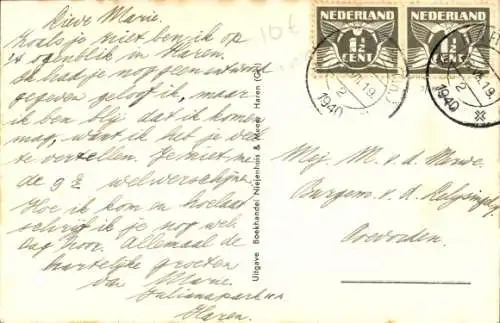 Lieve Marie.
Zoals je ziet ben ik op
't ogenblik in Haren.
Ik had je nog geen antwoord
gegeven geloof ik, maar
ik ben blij dat ik komen
mag, want ik heb je veel
te vertellen. Je ziet me
de 9e wel verschijnen.
Hoe ik kom en hoelaat
schrijf ik je nog wel.
Dag hoor. Allemaal de
hartelijke groeten
van Marie.
Julianapark
Haren.
Uitgave: Boekhandel Nieijenhuis & Haren (Gr.)
10 t
NEDERLAND
1½
CENT
NEDERLAND
1½
CENT
19
1940
19
1940
Mej. M. v. d. Merwe.
Burgem. v. d.
Coevorden.